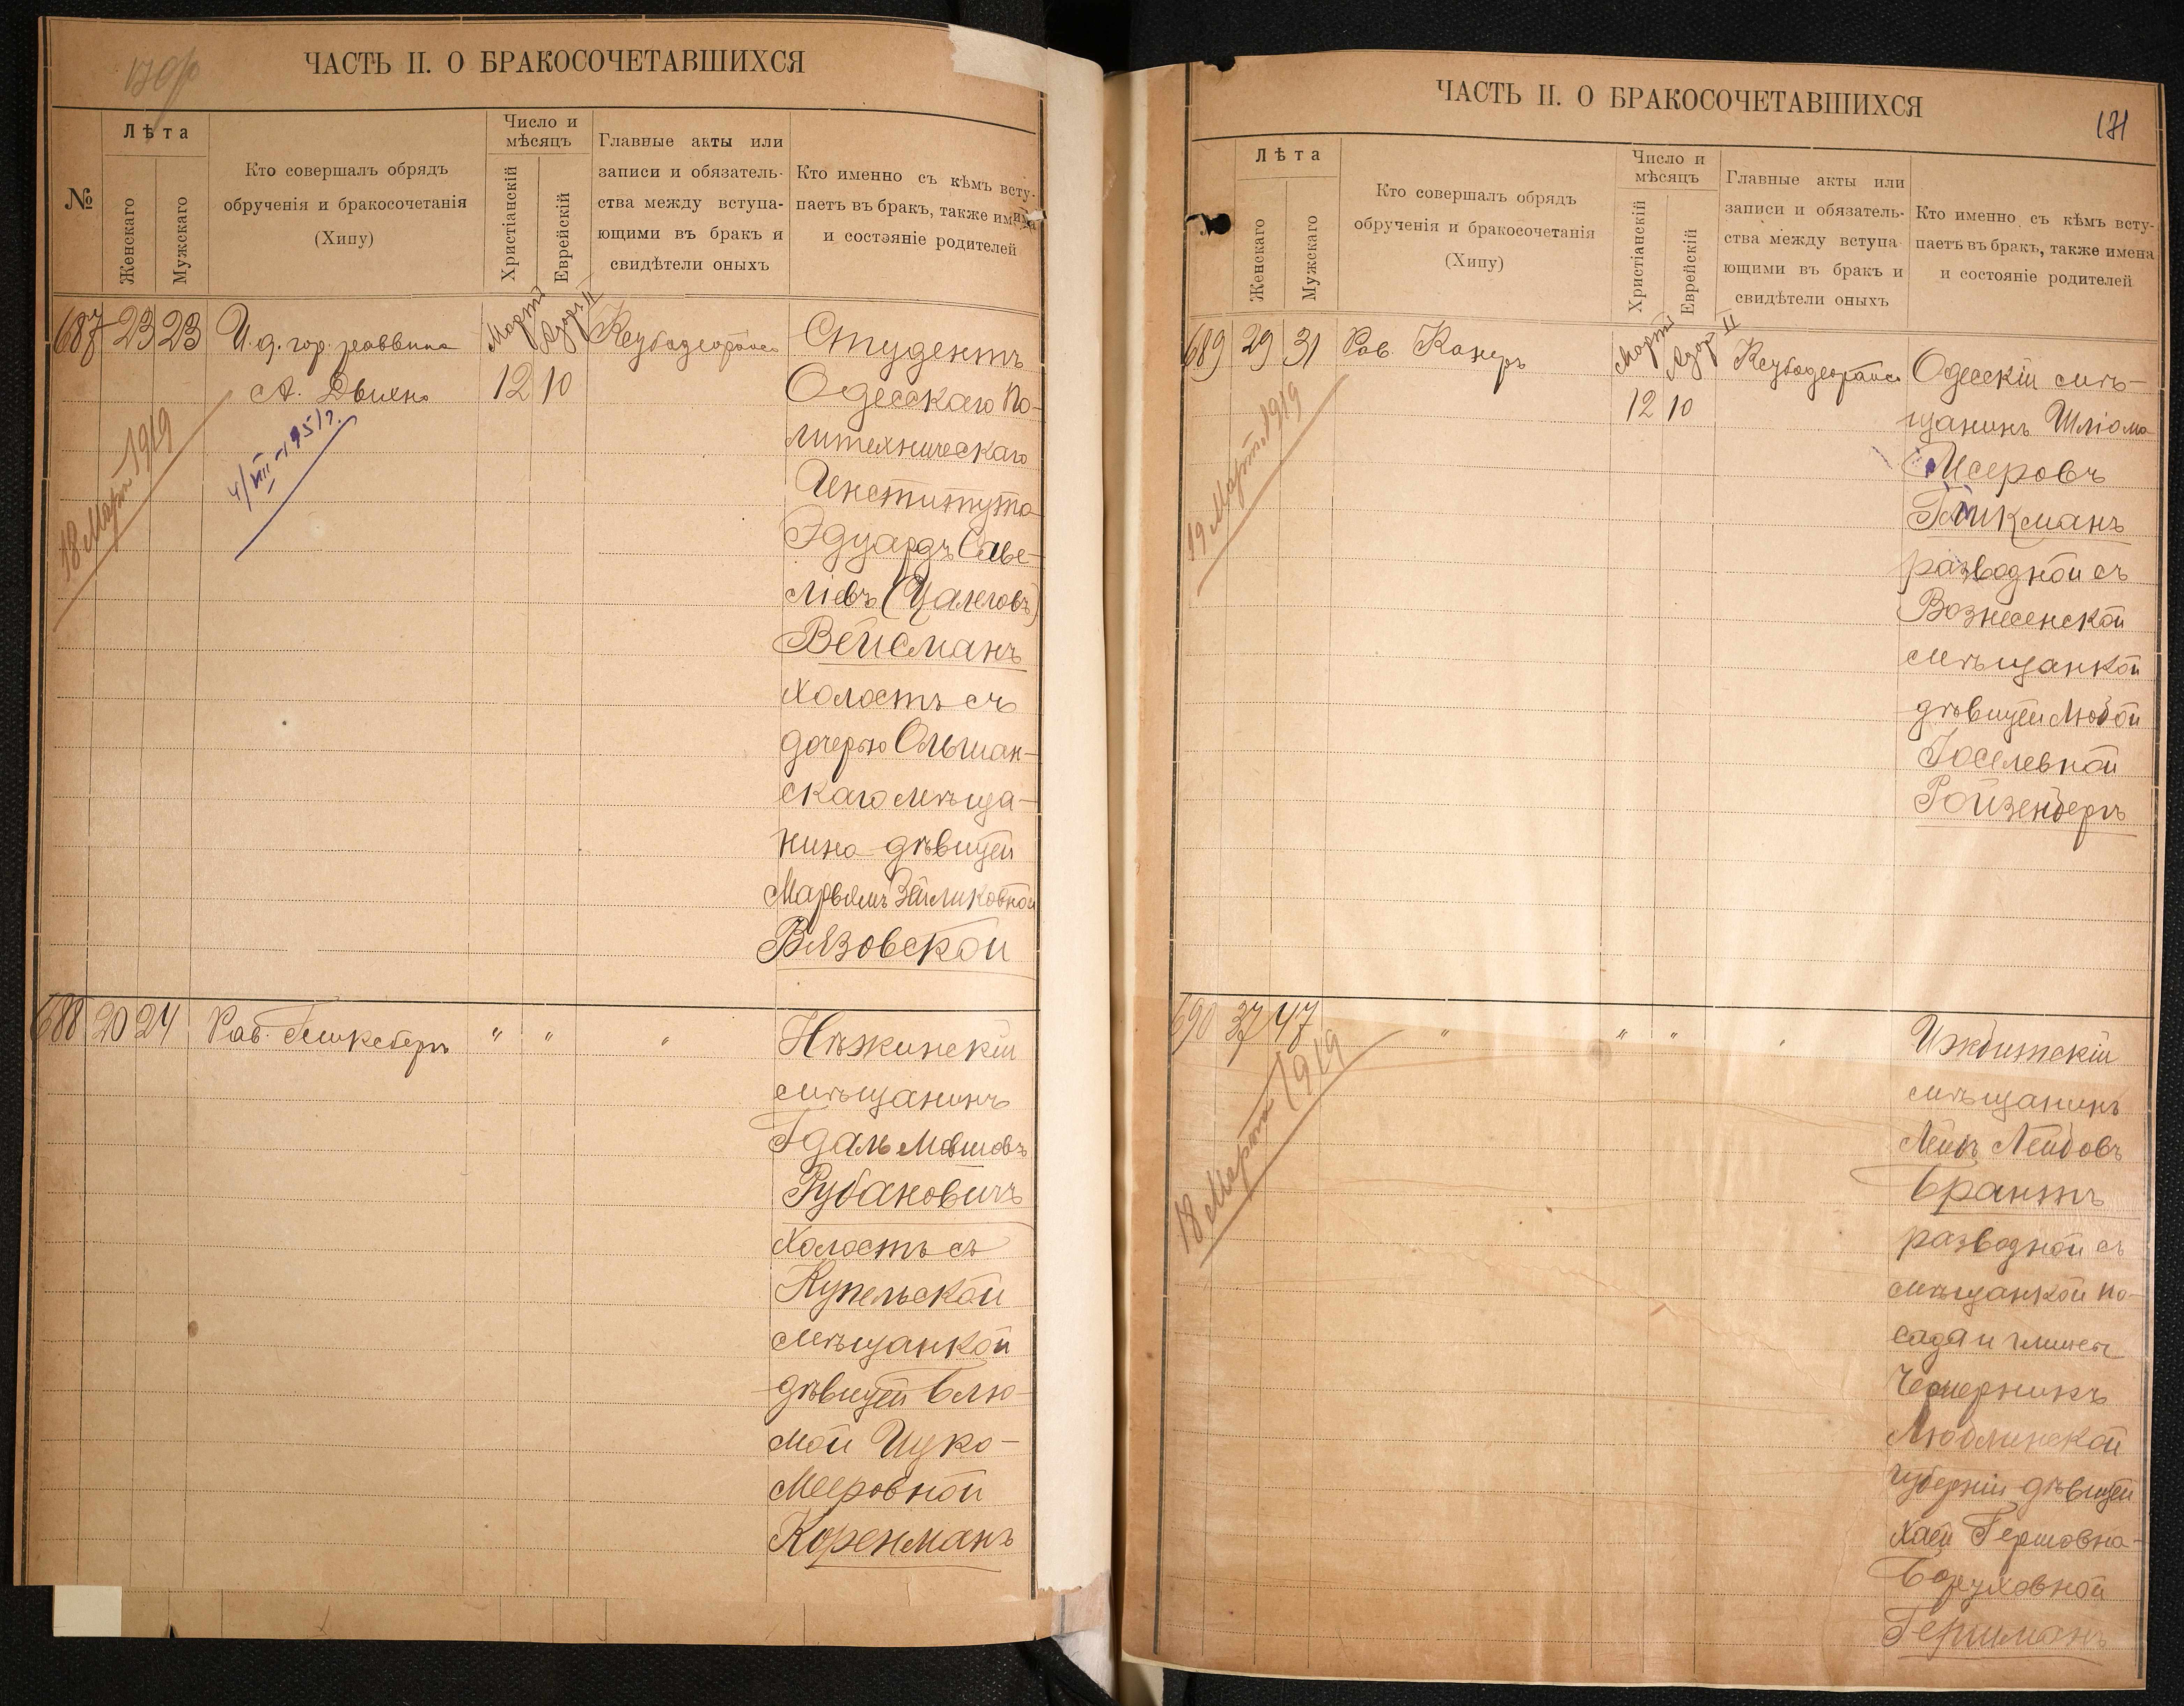 ЧАСТЬ II. О БРАКОСОЧЕТАВШИХСЯ
№
Лѣта
Женскаго
Мужскаго
Кто совершалъ обрядъ
обрученія и бракосочетанія
(Хипу)
Число и
мѣсяцъ
Христіанскій
Еврейскій
Главные акты или
записи и обязатель-
ства между вступа-
ющими въ бракъ и
свидѣтели оныхъ
Кто именно съ кѣмъ всту-
паетъ въ бракъ, также имена
и состояніе родителей
687 23 23
И. д. гор. раввина
А. Двинъ
Мартъ Адаръ II
12 10
18 Март 1919
4/VIII-1951 г.
Студентъ
Одесскаго По-
литехническаго
Института
Эдуардъ Саве-
ліевъ (Цалеговъ)
Вейсманъ
холостъ съ
дочерью Ольшан-
скаго мѣща-
нина дѣвицей
Марьямъ Зейликовной
Вязовской
688 20 24
Рав. Гликсбергъ
" " "
Нѣжинскій
мѣщанинъ
Гдаль Мошовъ
Рубановичъ
холостъ съ
Купельской
мѣщанкой
дѣвицей Блю-
мой Цуко-
Мееровной
Коренманъ
ЧАСТЬ II. О БРАКОСОЧЕТАВШИХСЯ
171
Лѣта
Женскаго
Мужскаго
Кто совершалъ обрядъ
обрученія и бракосочетанія
(Хипу)
Число и
мѣсяцъ
Христіанскій
Еврейскій
Главные акты или
записи и обязатель-
ства между вступа-
ющими въ бракъ и
свидѣтели оныхъ
Кто именно съ кѣмъ всту-
паетъ въ бракъ, также имена
и состояніе родителей
689 29 31
Рав. Канеръ
Мартъ Адаръ II
12 10
19 Март 1919
Одесскій мѣ-
щанинъ Шліома
Исеровъ
разводной съ
Вознесенской
мѣщанкой
дѣвицей Любой
Іоселевной
Ройзенбергъ
690 37 47
" " " "
18 Март 1919
Ижбитскій
мѣщанинъ
Лейбъ Лейбовъ
Брантъ
разводной съ
мѣщанкой по-
сада и гмины
Чемерникъ
Люблинской
губерніи дѣвицей
Хаей Гершовна-
Боруховной
Гершманъ